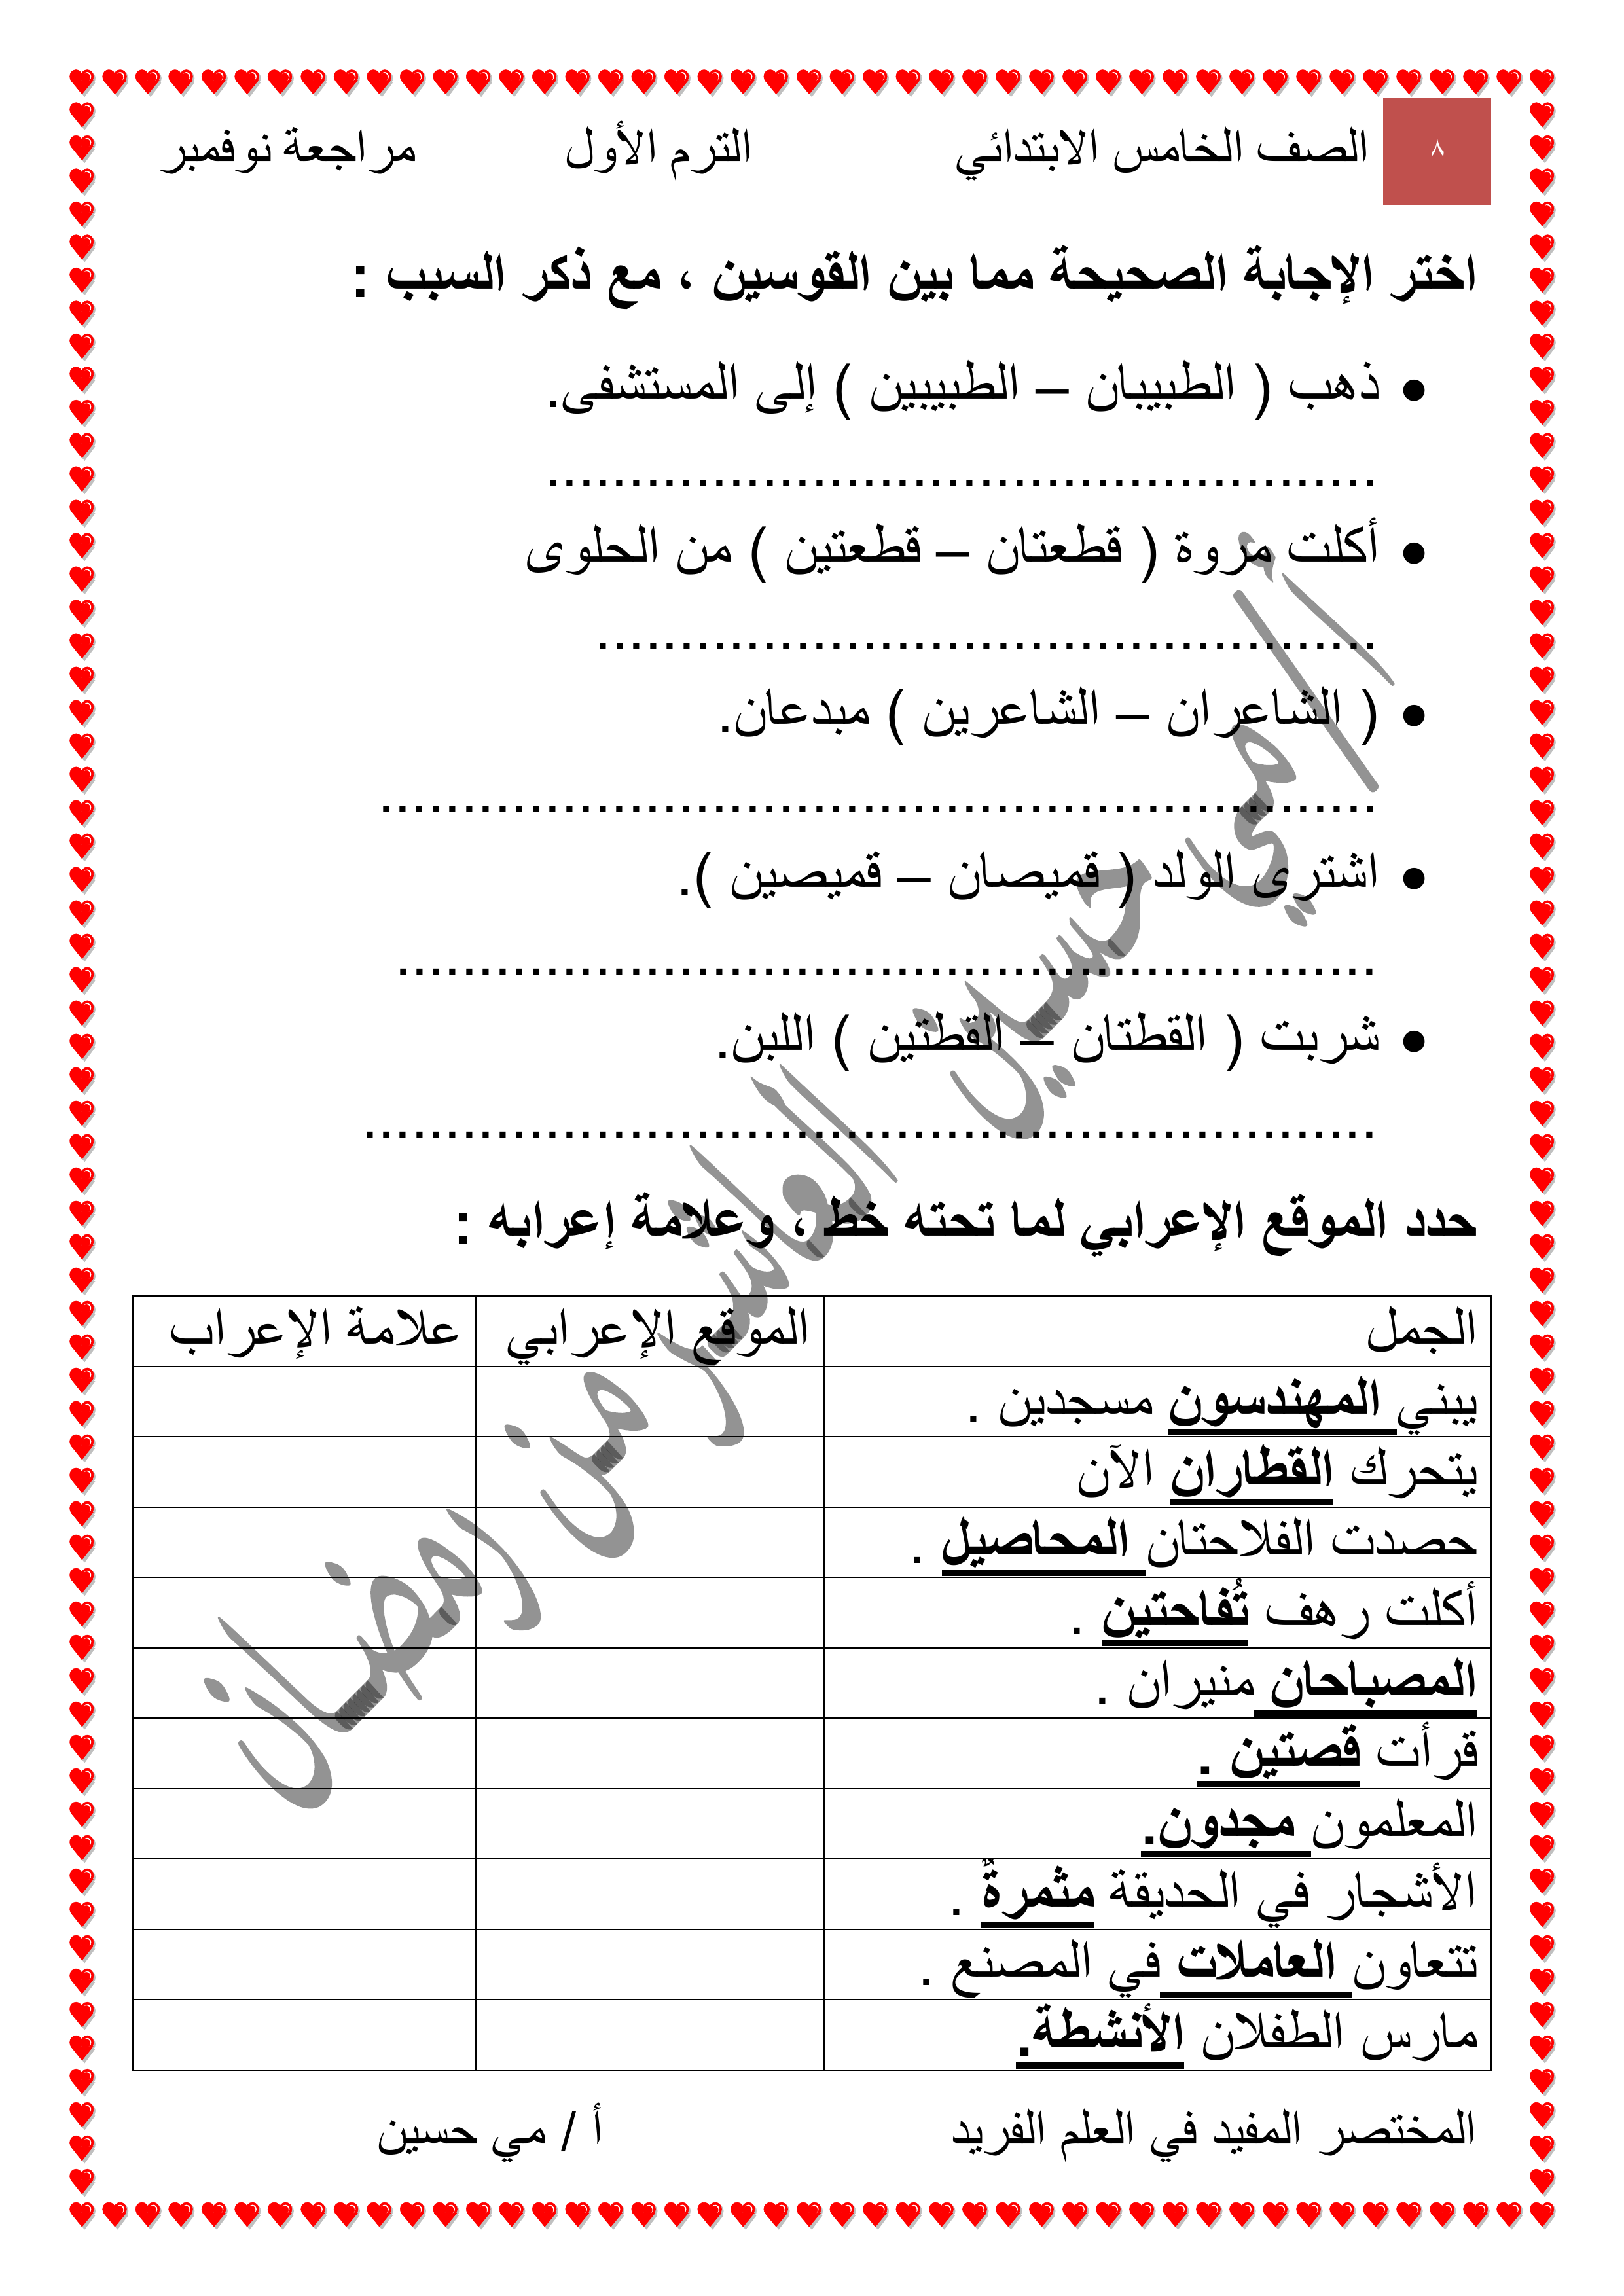 ٨
الصف الخامس الابتدائي الترم الأول مراجعة نوفمبر
اختر الإجابة الصحيحة مما بين القوسين ، مع ذكر السبب :
• ذهب ( الطبيبان – الطبيبين ) إلى المستشفى.
..................................................
• أكلت مروة ( قطعتان – قطعتين ) من الحلوى
...............................................
• ( الشاعران – الشاعرين ) مبدعان.
............................................................
• اشترى الولد ( قميصان – قميصين ).
...........................................................
• شربت ( القطتان – القطتين ) اللبن.
.............................................................
حدد الموقع الإعرابي لما تحته خط ، وعلامة إعرابه :
الجمل الموقع الإعرابي علامة الإعراب
يبني المهندسون مسجدين .
يتحرك القطاران الآن
حصدت الفلاحتان المحاصيل .
أكلت رهف تُفاحتين .
المصباحان منيران .
قرأت قصتين .
المعلمون مجدون.
الأشجار في الحديقة مثمرةٌ .
تتعاون العاملات في المصنع .
مارس الطفلان الأنشطة.
المختصر المفيد في العلم الفريد أ / مي حسين
أ/مي حسين العاشر من رمضان